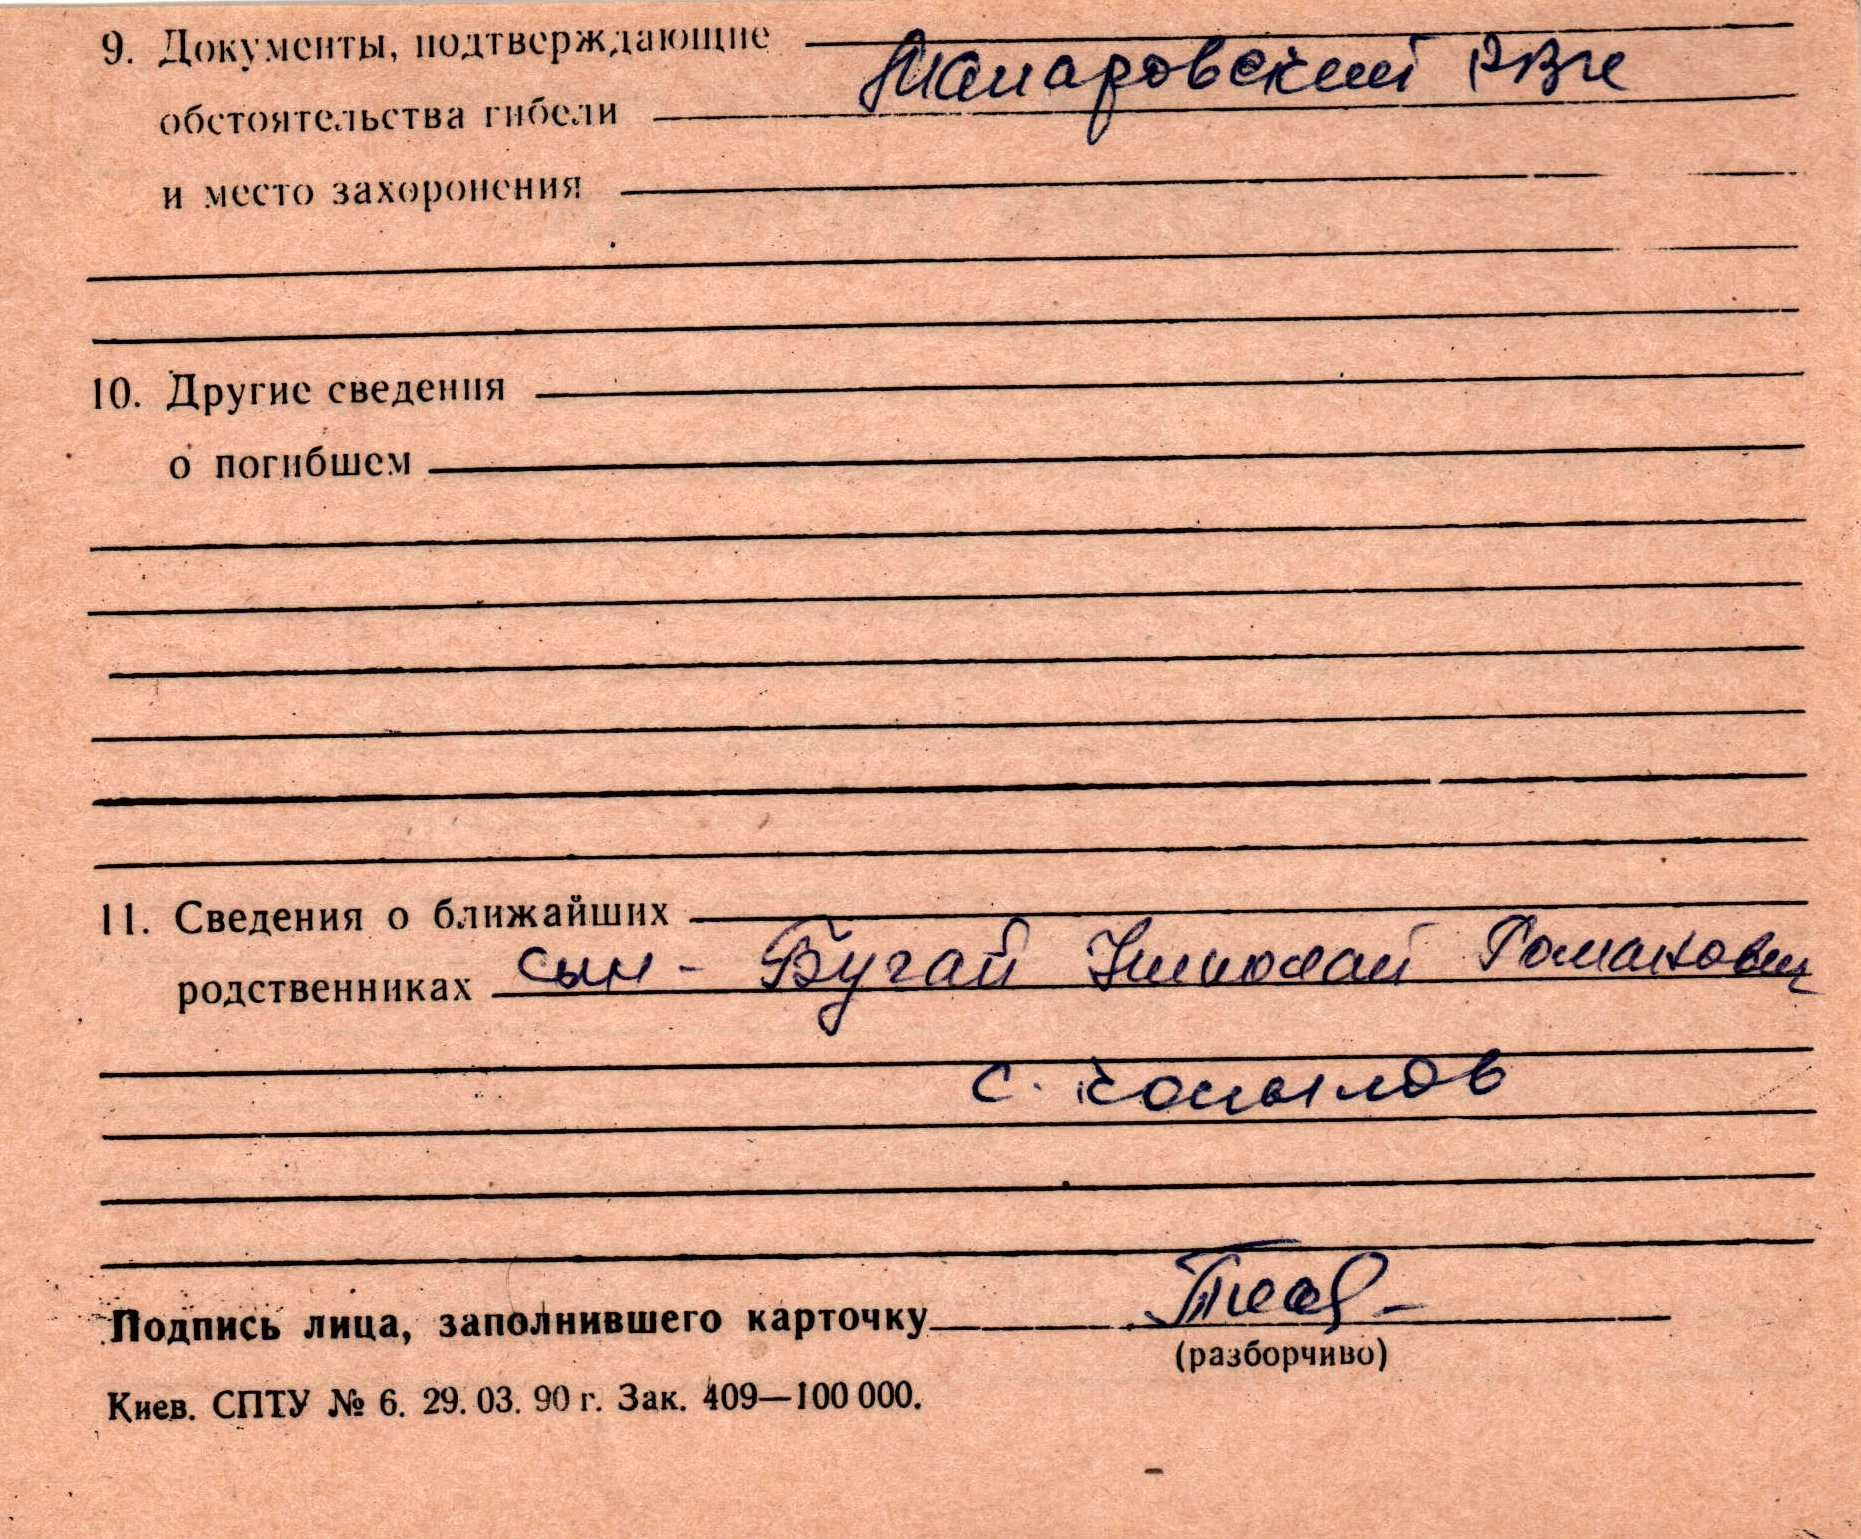 9. Документы, подтверждающие
Макаровский РВК
обстоятельства гибели
и место захоронения
10. Другие сведения
о погибшем
11. Сведения о ближайших
родственниках сын - Бугай Николай Романович
с. Копылов
Подпись лица, заполнившего карточку
(разборчиво)
Киев. СПТУ № 6. 29. 03. 90 г. Зак. 409—100 000.